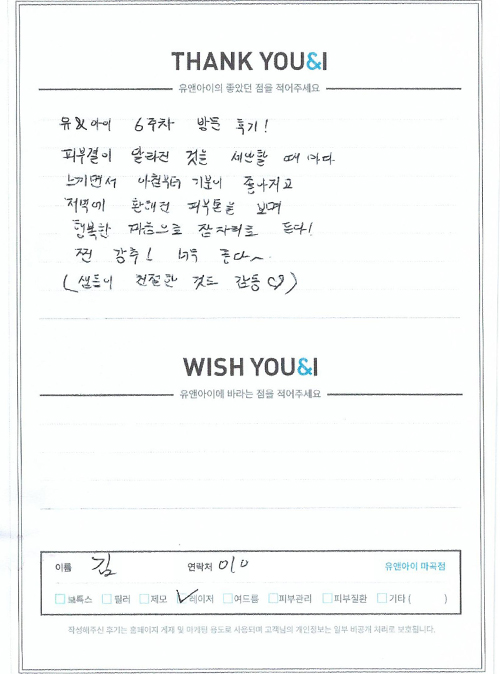 THANK YOU&I
유앤아이의 좋았던 점을 적어주세요
유&아이 6주차 방문 후기!
피부결이 달라진 것을 세안할 때 마다
느끼면서 아침부터 기분이 좋아지고
저녁에 환해진 피부톤을 보며
행복한 마음으로 잠자리로 든다!
찐 강추! 너무 좋다~
(샘들이 친절한 것도 감동♡)
WISH YOU&I
유앤아이에 바라는 점을 적어주세요
이름 김 연락처 010 유앤아이 마곡점
보톡스 필러 제모 레이저 여드름 피부관리 피부질환 기타 ( )
작성해주신 후기는 홈페이지 게재 및 마케팅 용도로 사용되며 고객님의 개인정보는 일부 비공개 처리로 보호됩니다.